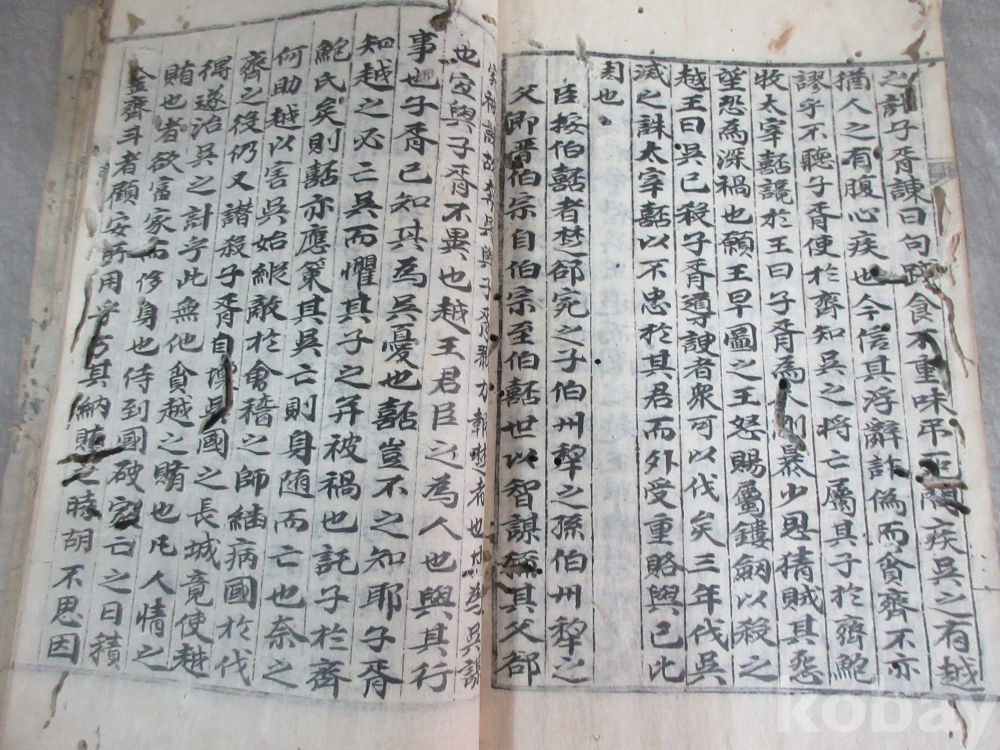 之計子胥諫曰句踐食不重味吊死問疾吳之有越
猶人之有腹心疾也今信其浮辭詐偽而貪齊不亦
謬乎不聽子胥使於齊知吳之將亡屬其子於齊鮑
牧太宰嚭讒於王曰子胥為人剛暴少恩猜賊其怨
望恐為深禍也願王早圖之王怒賜屬鏤劒以殺之
越王曰吳已殺子胥導諛者衆可以伐矣三年伐吳
滅之誅太宰嚭以不忠於其君而外受重賂與己比
周也
臣按伯嚭者楚郤完之子伯州犂之孫伯州犂之
父卽晋伯宗自伯宗至伯嚭世以智謀稱其父郤
奔吳與子胥
也宜與子胥不異也越王君臣之為人也與其行
事也子胥已知其為吳憂也嚭豈不之知耶子胥
知越之必亡吳而懼其子之并被禍也託子於齊
鮑氏矣則嚭亦應策其吳亡則身随而亡也奈之
何助越以害吳始縱敵於會稽之師結病國於伐
齊之後仍又譖殺子胥自壞吳國之長城竟使越
得遂治吳之計乎此無他貪越之賂也凡人情之
賄也者欲富家而侈身也侍到國破家亡之日積
金齊斗者顧安所用乎方其納賄之時胡不思因
kobay